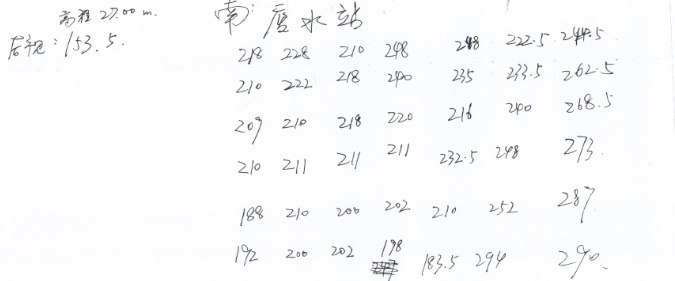 高程 27.00 m.
后视: 153.5.
南: 废水站
218 228 210 248 248 222.5 244.5
210 222 218 240 235 233.5 262.5
209 210 218 220 216 240 268.5
210 211 211 211 232.5 248 273.
188 210 200 202 210 252 287.
192 200 202 198 183.5 294 290.